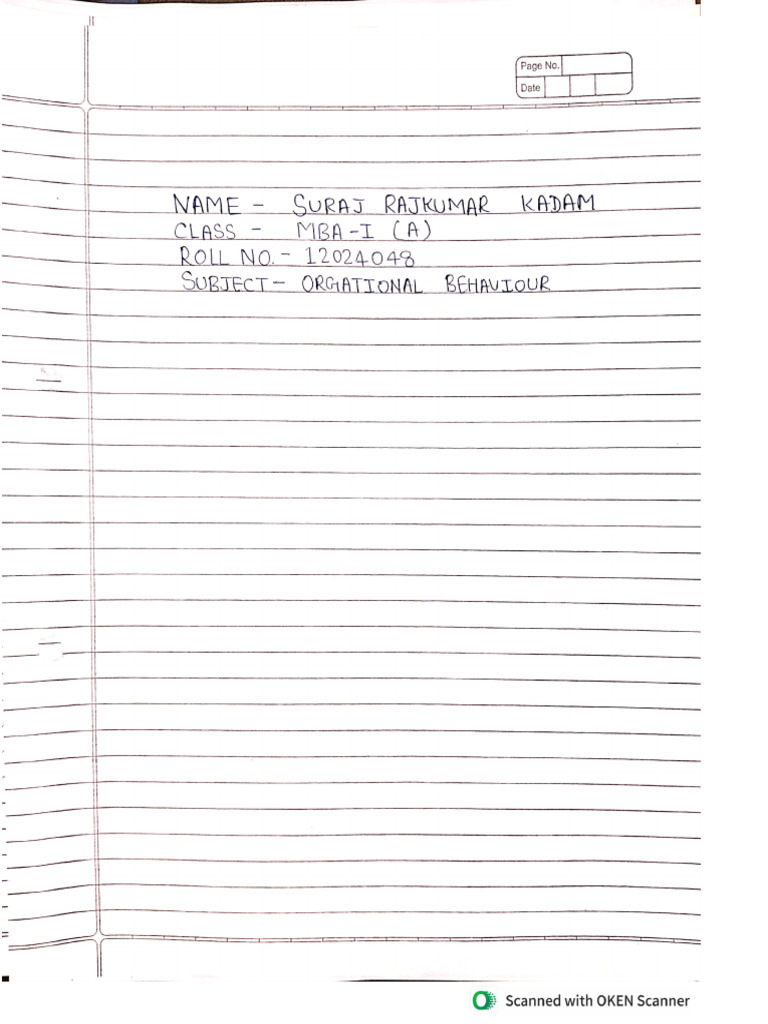 Page No.
Date
NAME - SURAJ RAJKUMAR KADAM
CLASS - MBA-I (A)
ROLL NO. - 12024048
SUBJECT - ORGATIONAL BEHAVIOUR
Scanned with OKEN Scanner